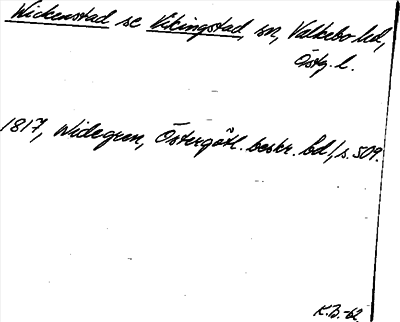 Wickenstad se Vikingstad, sn, Valkebo hd,
Östg. l.
1817, Widegren, Östergötl. beskr. bd 1, s. 509.
K.B.-62